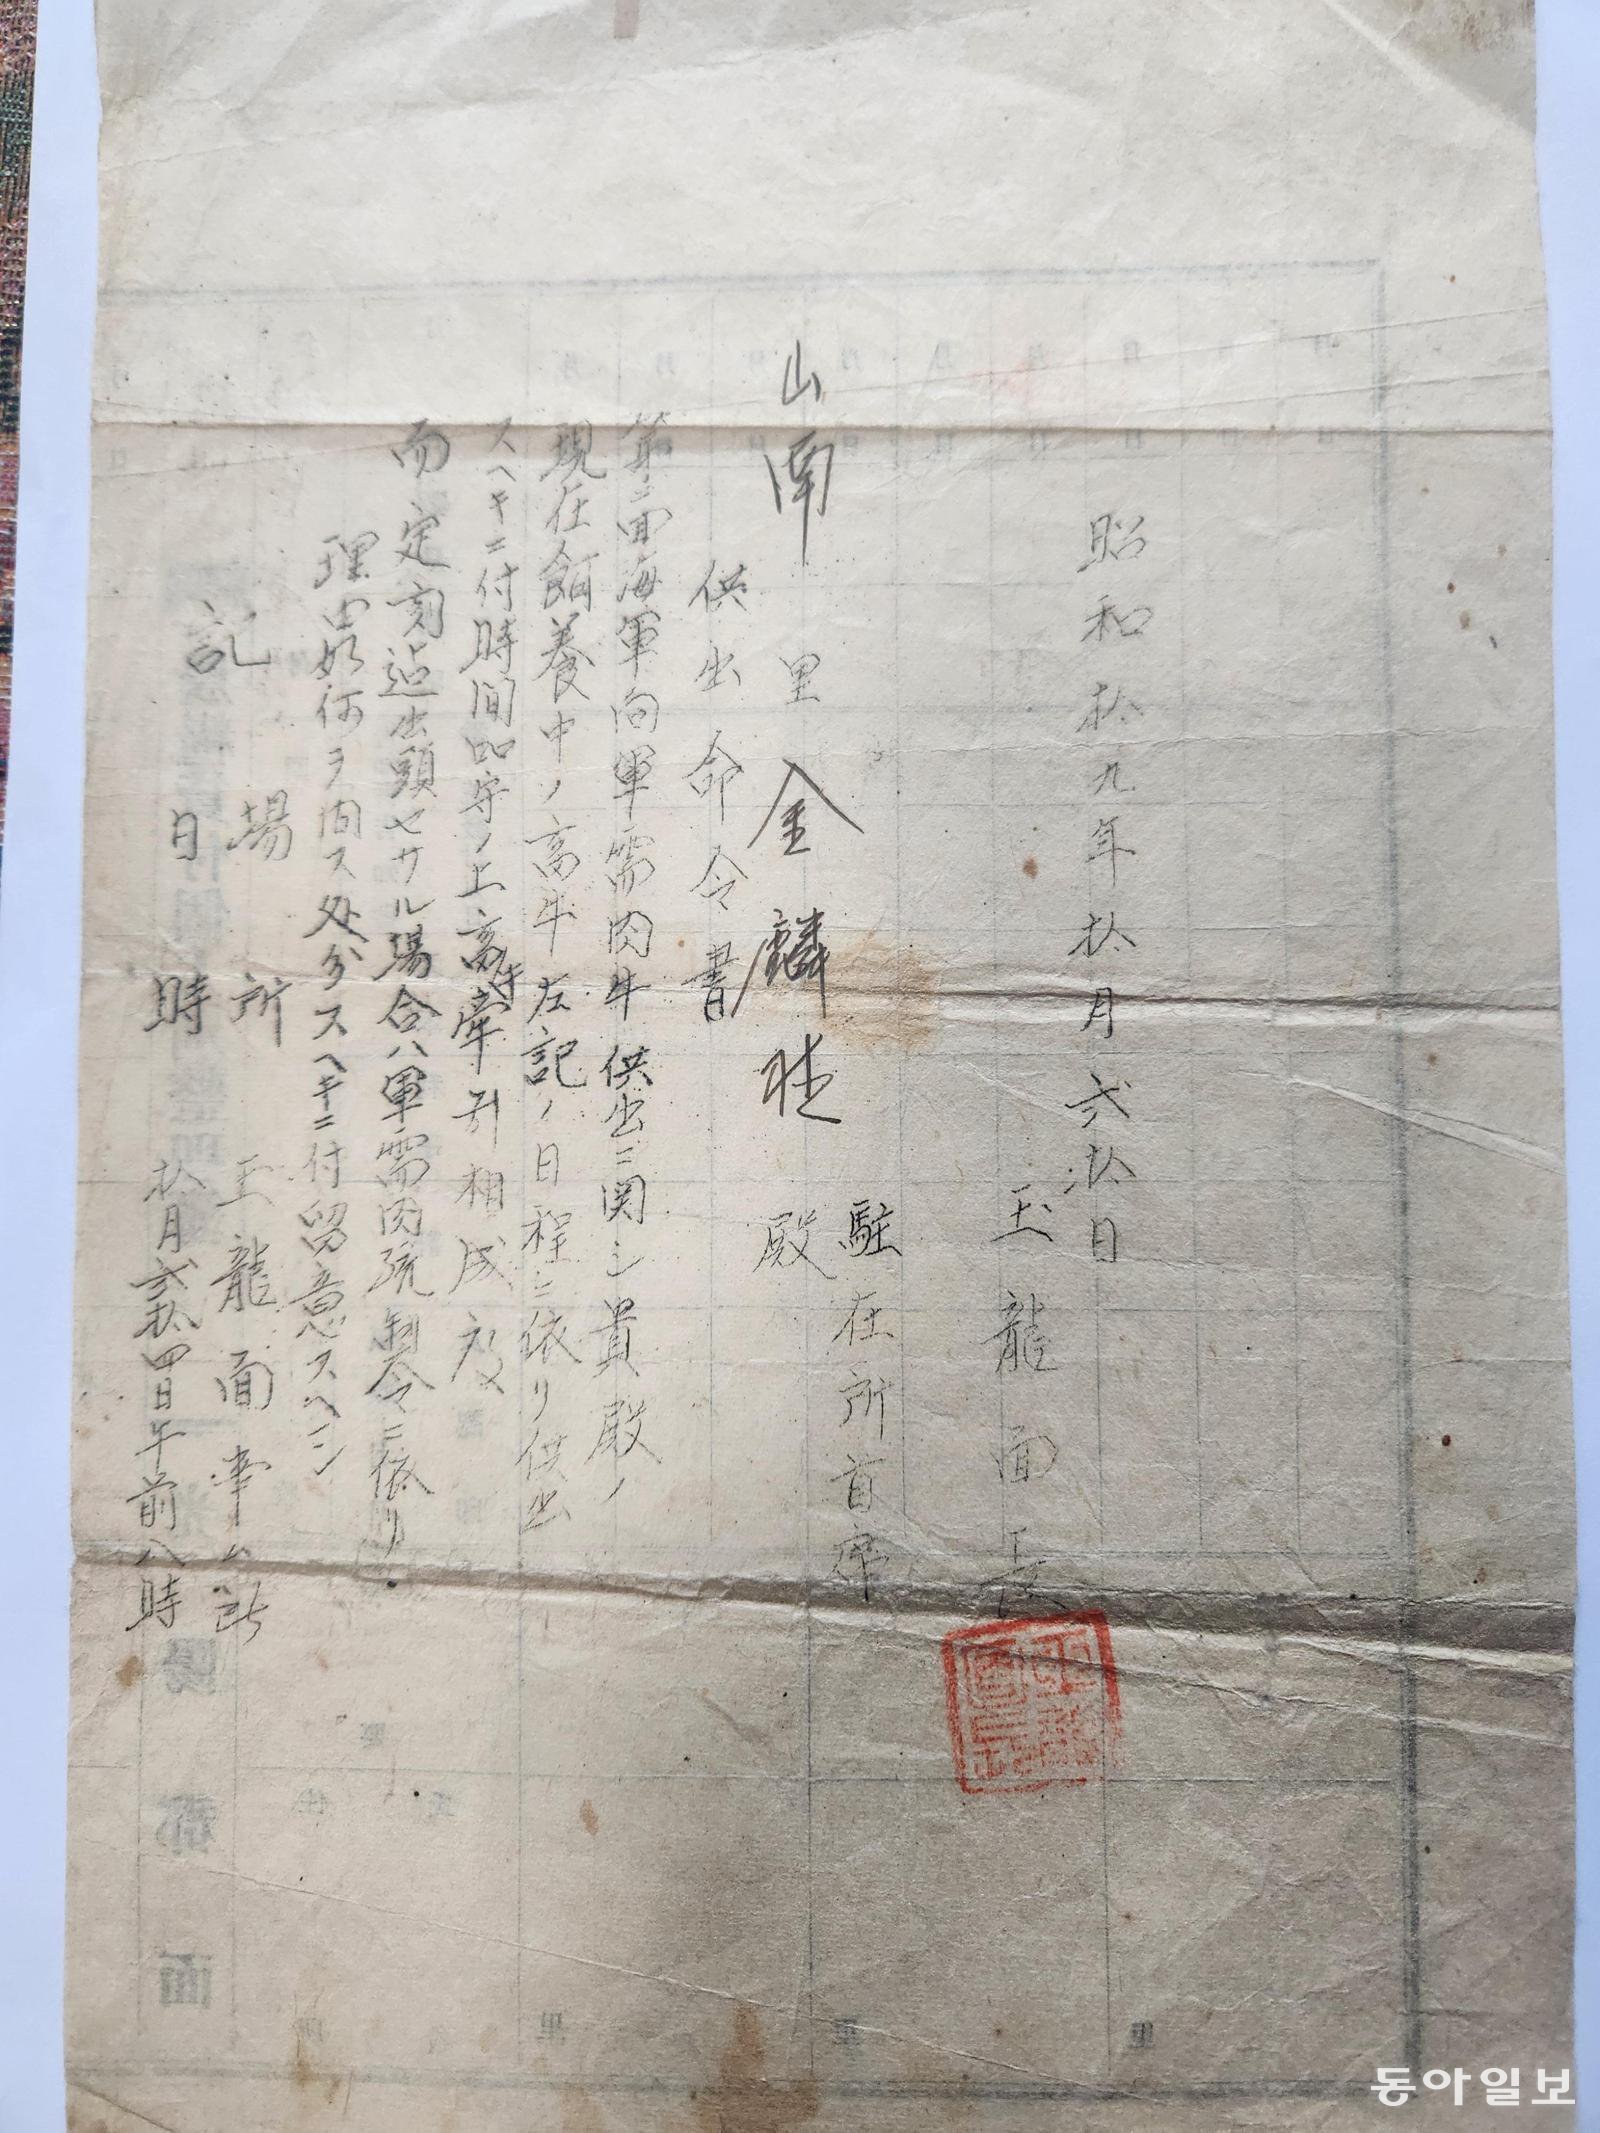 昭和拾九年拾月弐拾日
玉龍面長
駐在所首席
山南里 金麟 殿
供出命令書
第二回海軍向軍需肉牛供出ニ関シ貴殿ノ
現在飼養中ノ畜牛左記ノ日程ニ依リ供出
スヘキニ付時間厳守ノ上畜牛牽引相成度
而定刻迄出頭セサル場合ハ軍需肉統制令ニ依リ
理由如何ヲ問ス処分スヘキニ付留意スヘシ
記
場所 玉龍面事ム所
日時 拾月弐拾四日午前八時
동아일보